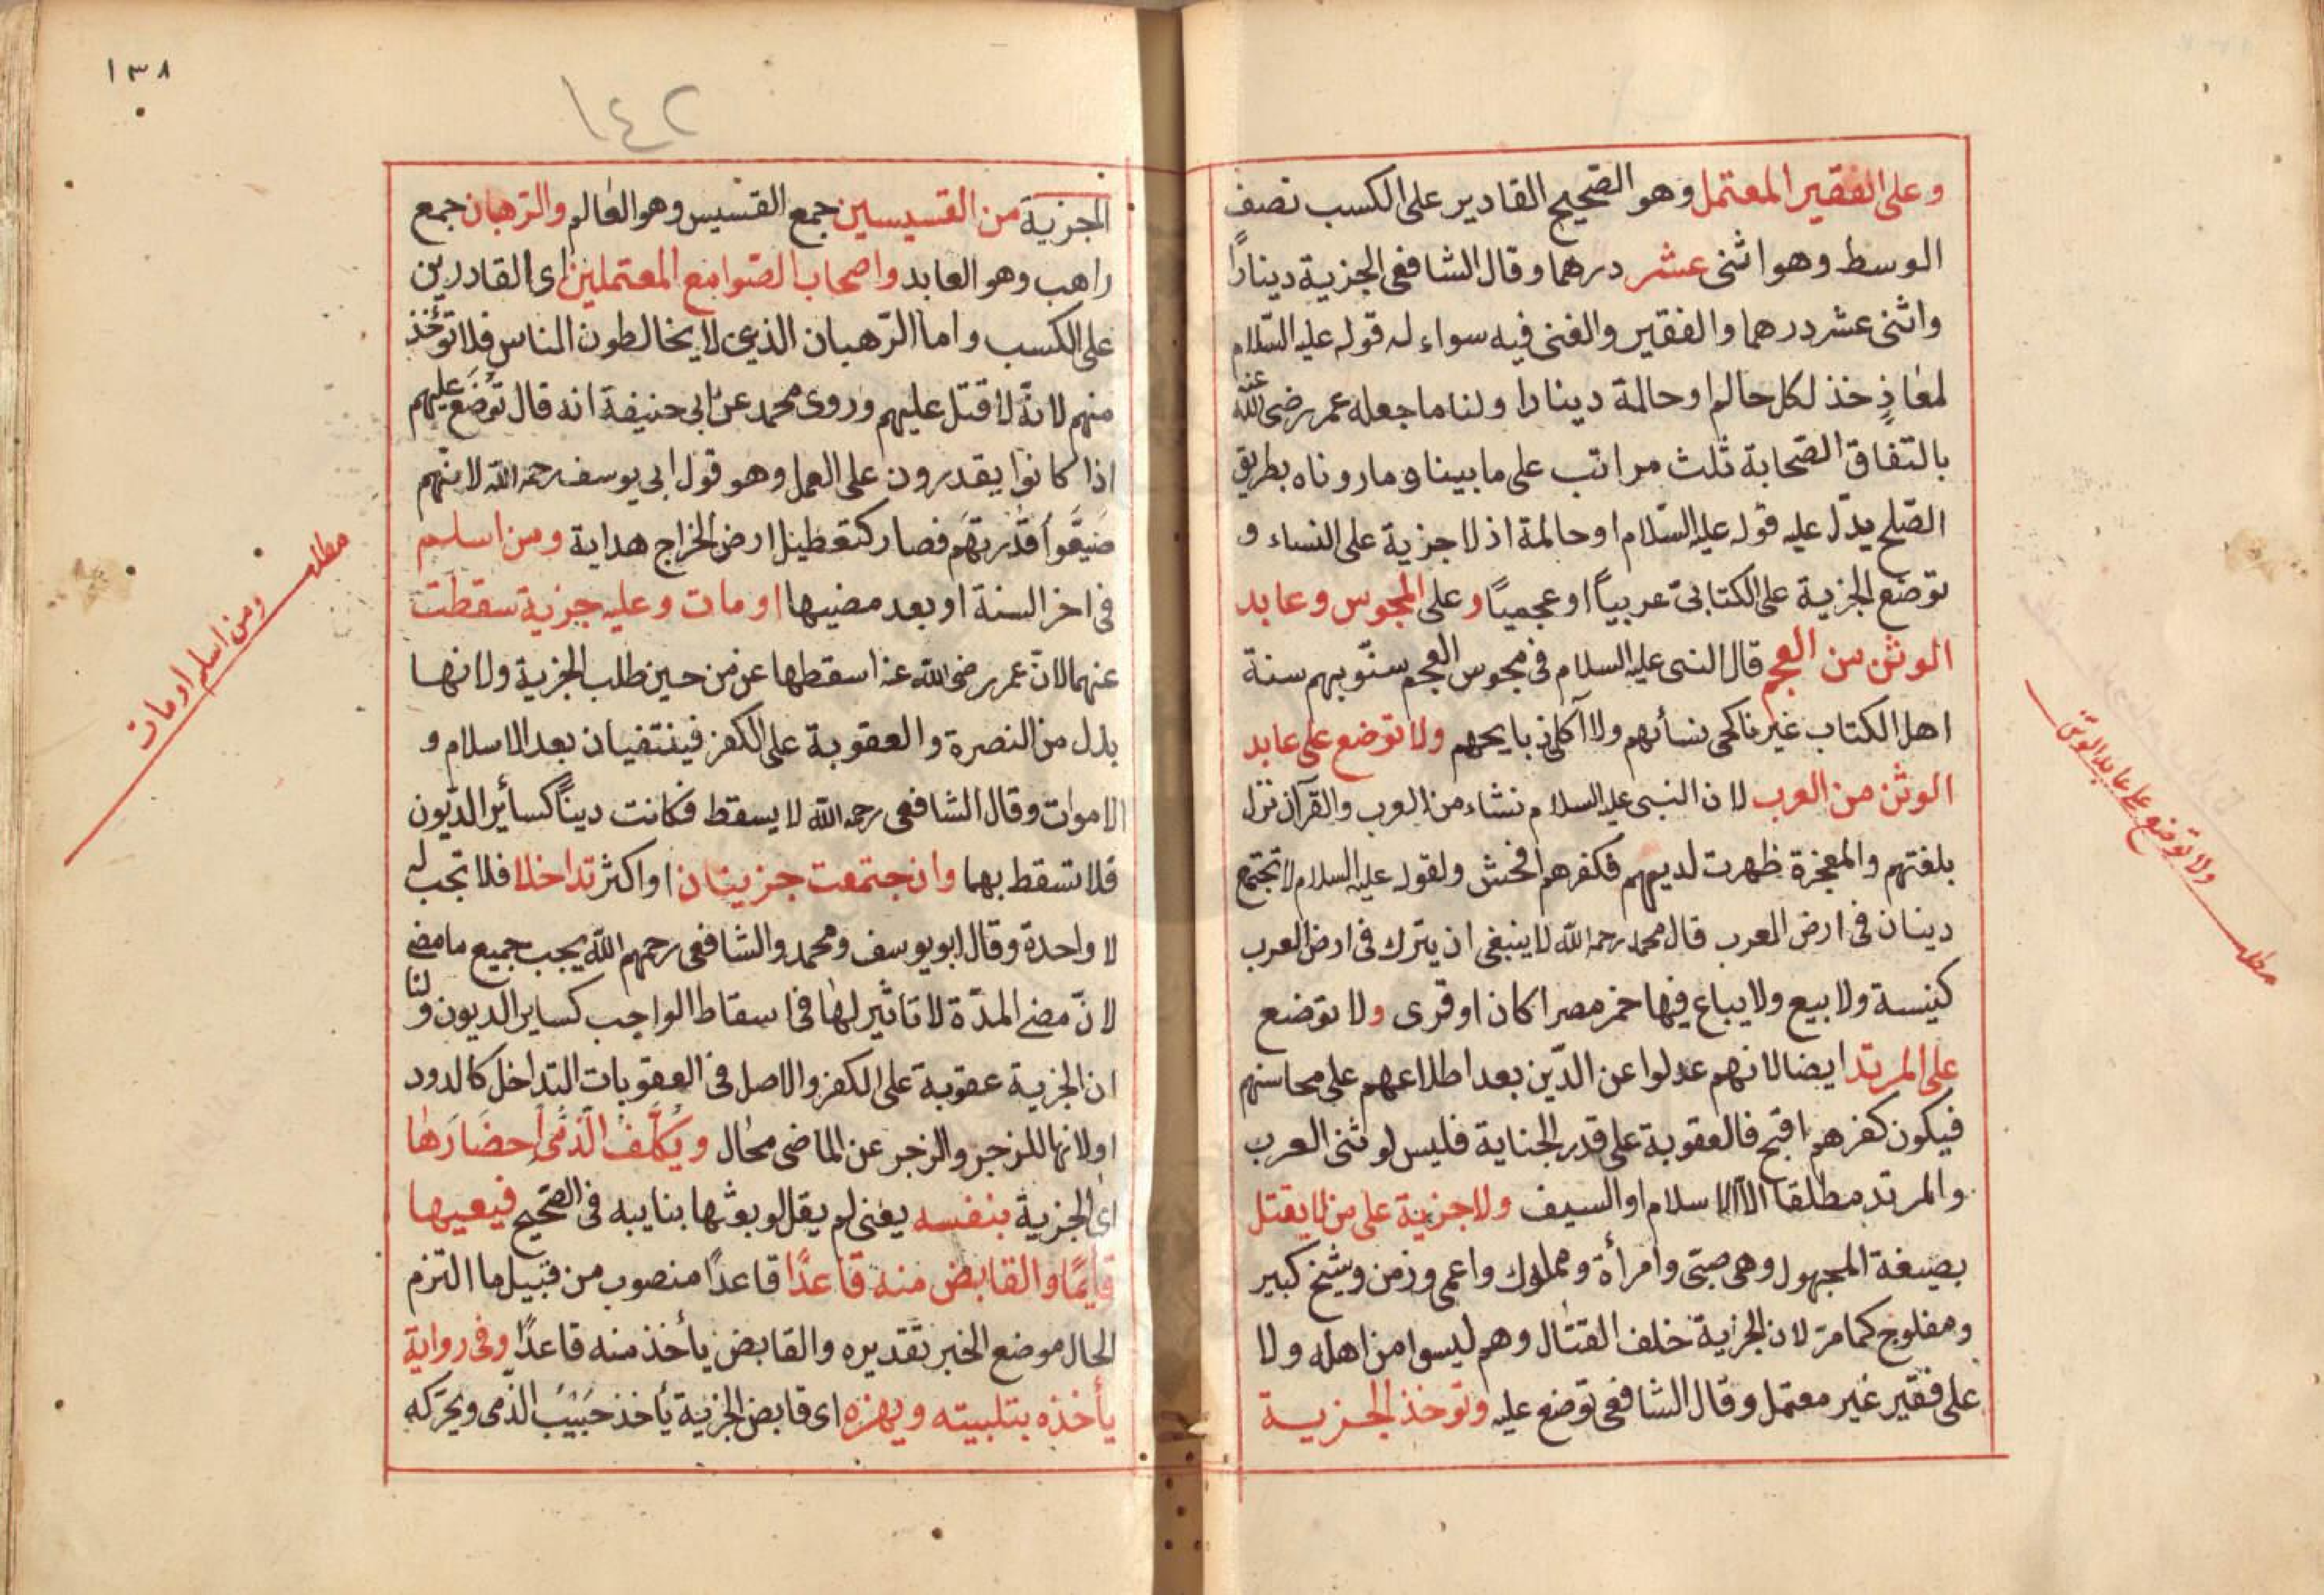 وعلى الفقير المعتمل وهو الصحيح القادير على الكسب نصف
الوسط وهو اثنى عشر درهما وقال الشافعى الجزية دينارًا
واثنى عشر درهما والفقير والغنى فيه سواء له قوله عليه السّلام
لمعاذٍ خذ لكل حالم او حالمة دينارا ولنا ما جعله عمر رضى الله عنه
بالتفاق الصّحابة ثلث مراتب على ما بينا وما روناه بطريق
الصّلح يدّل عليه قوله عليه السّلام او حالمة اذ لا جزية على النساء و
توضع الجزية على الكتابىّ عربياً او عجمياً وعلى المجوس وعابد
الوثن من العجم قال النبى عليه السلام فى مجوس العجم سنّوبهم سنة
اهل الكتاب غير ناكحى نسأئهم ولا آكلى ذبايحهم ولا توضع على عابد
الوثن من العرب لان النبى عليه السلام نشاء من العرب والقرآن نزل
بلغتهم والمعجزة ظهرت لديهم فكفرهم افحش ولقوله عليه السلام لا تجتمع
دينان فى ارض العرب قال محمد رحمه الله لا ينبغى ان يترك فى ارض العرب
كنيسة ولا بيع ولا يباع فيها خمر مصرا كان او قرى ولا توضع
على المرتد ايضا لانهم عدلوا عن الدّين بعد اطلاعهم على محاسنهم
فيكون كفرهم اقبح فالعقوبة على قدر الجناية فليس لوثنى العرب
والمرتد مطلقا الا الاسلام او السيف ولا جزية على من لا يقتل
بصيغة المجهول وهى صبّى وامرأة ومملوك واعمى وزمن وشيخ كبير
ومفلوج كما مرّ لان الجزية خلف القتال وهم ليسوا من اهله ولا
على فقير غير معتمل وقال الشافعى توضع عليه وتوخذ الجزية
ولا توضع على عابد الوثن
مطلب
١٣٨
١٤٢
الجزية من القسيسين جمع القسيس وهو العالم والرّهبان جمع
راهب وهو العابد واصحاب الصّوامع المعتملين اى القادرين
على الكسب واما الرّهبان الذين لا يخالطون الناس فلا تؤخذ
منهم لانهّ لا قتل عليهم وروى محمد عن ابى حنيفة انه قال تُوضَع عليهم
اذا كانوا يقدرون على العمل وهو قول ابى يوسف رحمه الله لانّهم
ضَيقَّوا قدرتهم فصار كتعطيل ارض الخراج هداية ومن اسلم
فى اخر السنة او بعد مضيها او مات وعليه جزية سقطت
عنهما لانّ عمر رضى الله عنه اسقطها عن من حين طلب الجزية ولانها
بدل من النصرة والعقوبة على الكفر فينتفيان بعد الاسلام و
الاموات وقال الشافعى رحمه الله لا يسقط فكانت ديناً كسأير الديون
فلا تسقط بهما وان جتمعت جزيتان او اكثر تداخلا فلا تجب له
لا واحدة وقال ابو يوسف ومحمد والشافعى رحمهم الله يجب جميع ما مضى
لانّ مضى المدّة لا تاثير لها فى اسقاط الواجب كساير الديون ولنا
ان الجزية عقوبة على الكفر والاصل فى العقوبات التداخل كالدود
او لانها للزجر والزجر عن الماضى محال ويُكلَّفُ الذّمى احضارها
اى الجزية بنفسه يعنى لم يقل لو بعثها بنايبه فى الصّحيح فيعيها
قايمًا والقابض منه قاعدًا قاعدًا منصوب من قبيل ما التزم
الحال موضع الخبر تقديره والقابض يأخذ منه قاعدًا وفى رواية
يأخذه بتلبيته ويهزه اى قابض الجزية يأخذ حَبيْبَ الذمى ويحرّكه
مطلب
ومن اسلم او مات